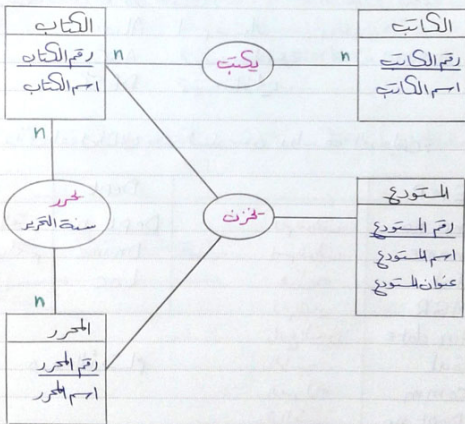 الكتاب
رقم الكتاب
اسم الكتاب
n
يكتب
n
الكاتب
رقم الكاتب
اسم الكاتب
n
تحرر
سنة التحرير
n
تخزن
المستودع
رقم المستودع
اسم المستودع
عنوان المستودع
المحرر
رقم المحرر
اسم المحرر